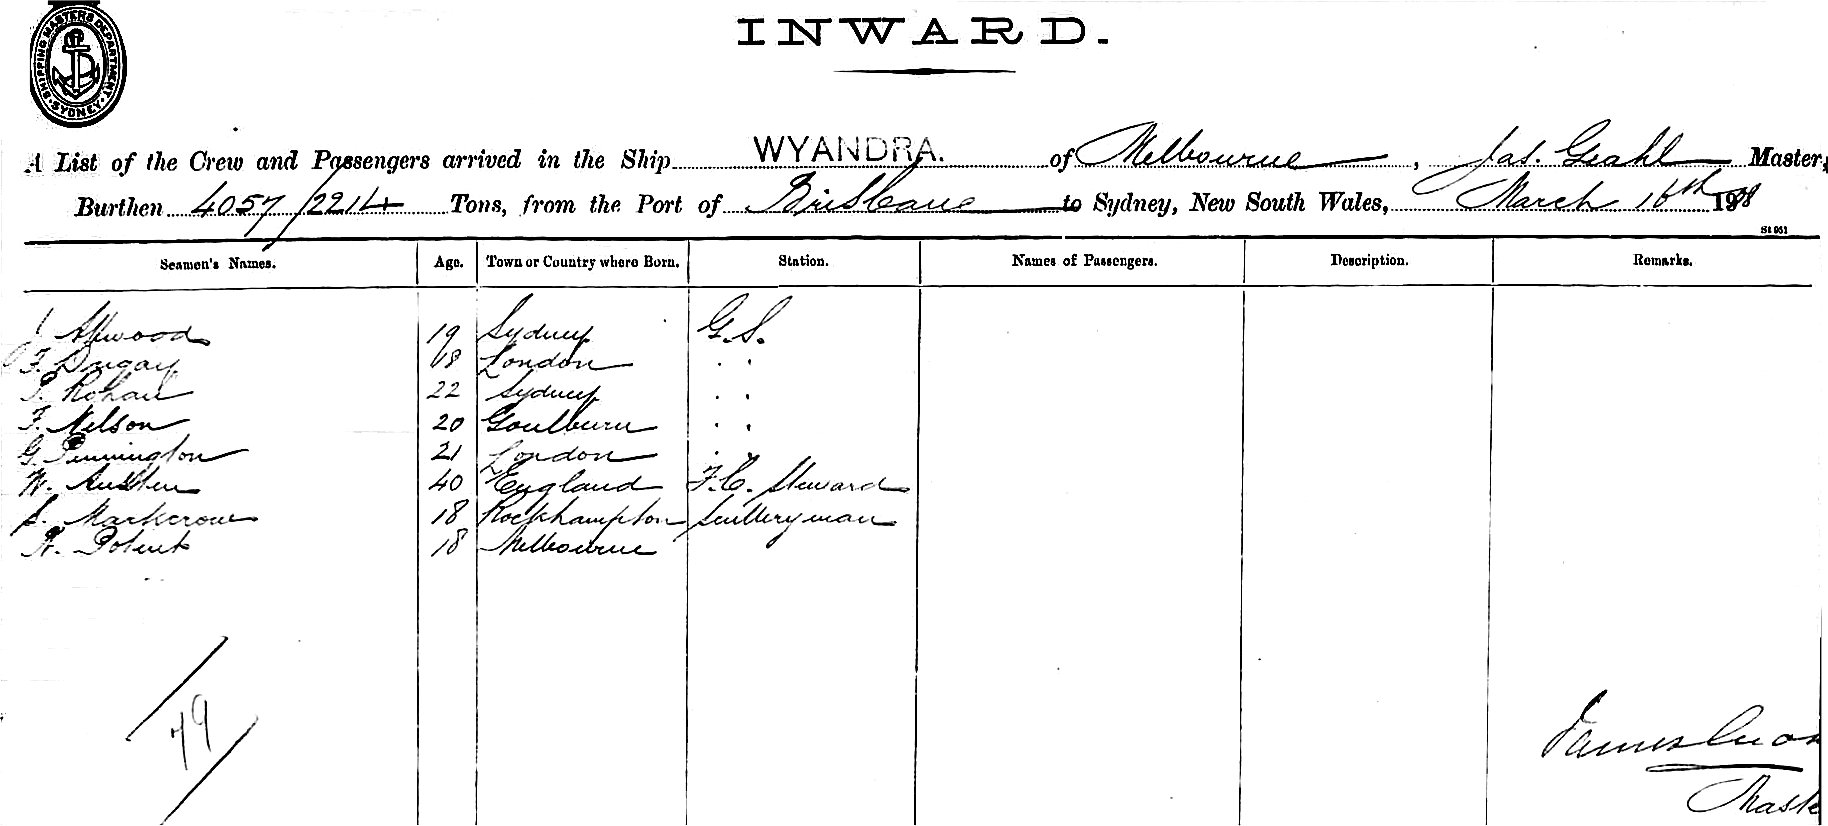 SHIPPING MASTERS DEPARTMENT. SYDNEY.
INWARD.
A List of the Crew and Passengers arrived in the Ship WYANDRA. of Melbourne, Jas. Master,
Burthen 4057/2214 Tons, from the Port of Brisbane to Sydney, New South Wales, March 16th 1908
St 951
Seamen's Names. Age. Town or Country where Born. Station. Names of Passengers. Description. Remarks.
J. Attwood 19 Sydney G.S.
F. Dugay 18 London " "
P. Rohan 22 Sydney " "
F. Nelson 20 Goulburn " "
G. Pennington 21 London " "
W. Austen 40 England F.C. Steward
S. Markcrow 18 Rockhampton Sculleryman
18 Melbourne
79
James
Maste